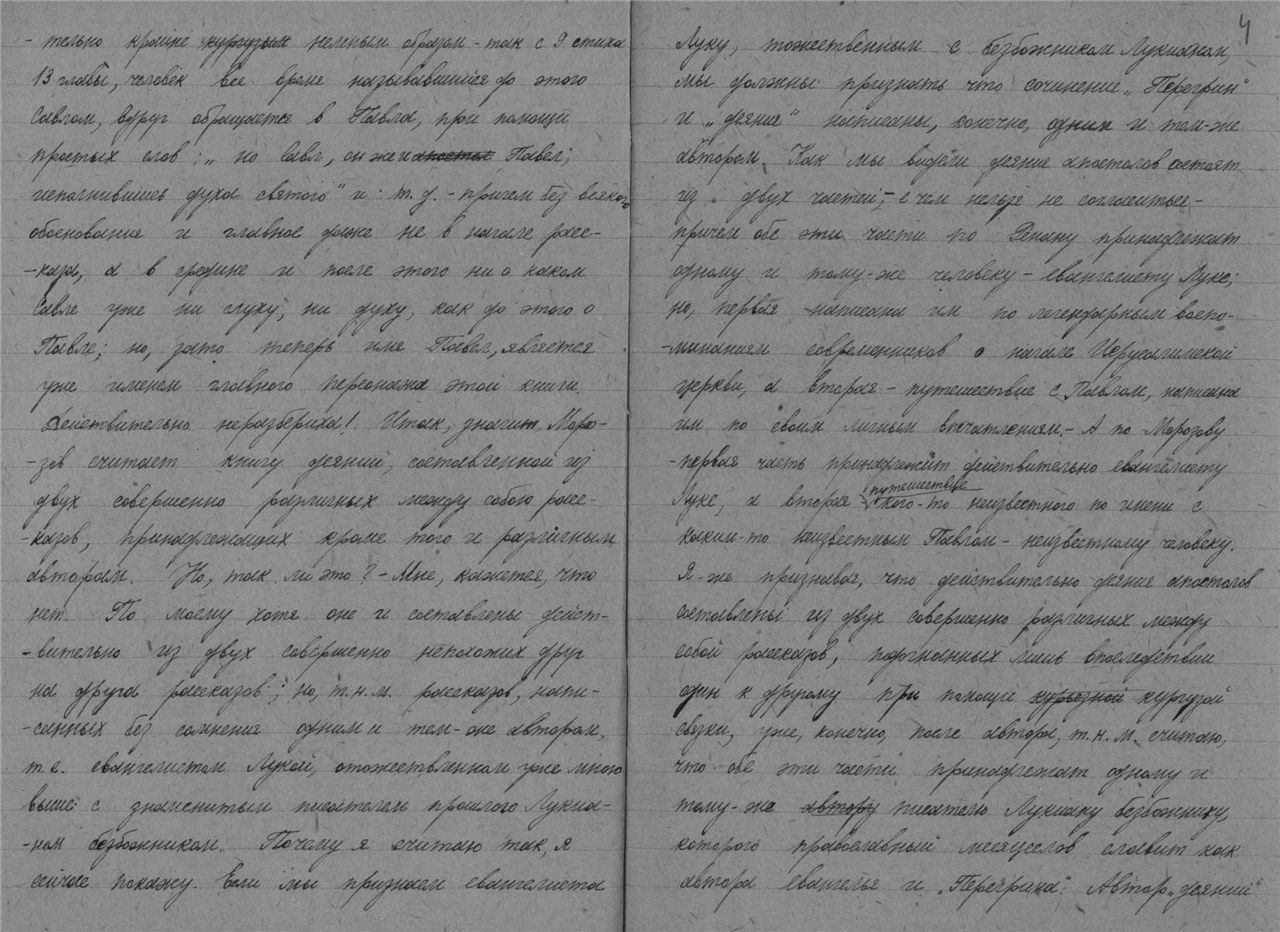 - тельно крайне кургузым нелепым образом - так с 9 стиха
13 главы, человек все время называвшийся до этого
Савлом, вдруг обращается в Павла, при помощи
простых слов: „но Савл, он же и апостол Павел;
исполнившись духа святого" и т. д. - причем без всякого
обоснования и главное даже не в начале расс-
-каза, а в средине и после этого ни о каком
Савле уже ни слуху, ни духу, как до этого о
Павле; но, зато теперь имя Павел, является
уже именем главного персонажа этой книги.
Действительно неразбериха! Итак, значит, Моро-
-зов считает книгу деяний, составленной из
двух совершенно различных между собою расс-
-казов, принадлежащих кроме того и различным
авторам. Но, так ли это? - Мне, кажется, что
нет. По моему хотя оне и составлены дейст-
-вительно из двух совершенно непохожих друг
на друга рассказов; но, т.н.м. рассказов, напи-
-санных без сомнения одним и тем-же автором,
т.е. евангелистом Лукой, отожествленном уже мною
выше с знаменитым писателем прошлого Лукиа-
-ном безбожником. Почему я считаю так, я
сейчас покажу. Если мы признаем евангелиста
4
Луку, тожественным с безбожником Лукианом,
мы должны признать что сочинение „Перегрин"
и „деяния" написаны, конечно, одним и тем-же
автором. Как мы видели деяние апостолов состоят
из двух частей, - с чем нельзя не согласиться -
причем обе эти части по Ренану принадлежат
одному и тому-же человеку - евангелисту Луке;
но, первая написана им по легендарным воспо-
-минаниям современников о начале Иерусалимской
церкви, а вторая - путешествие с Павлом, написана
им по своим личным впечатлениям. - А по Морозову
-первая часть принадлежит действительно евангелисту
Луке, а вторая путешествие кого-то неизвестного по имени с
каким-то неизвестным Павлом - неизвестному человеку.
Я-же признавая, что действительно деяние апостолов
составлены из двух совершенно различных между
собой рассказов, подогнанных лишь впоследствии
один к другому при помощи курьезной кургузой
связки, уже, конечно, после автора, т.н.м. считаю,
что обе эти части принадлежат одному и
тому-же автору писателю Лукиану безбожнику,
которого православный месяцеслов славит как
автора евангелья и „Перегрина". Автор „деяний"